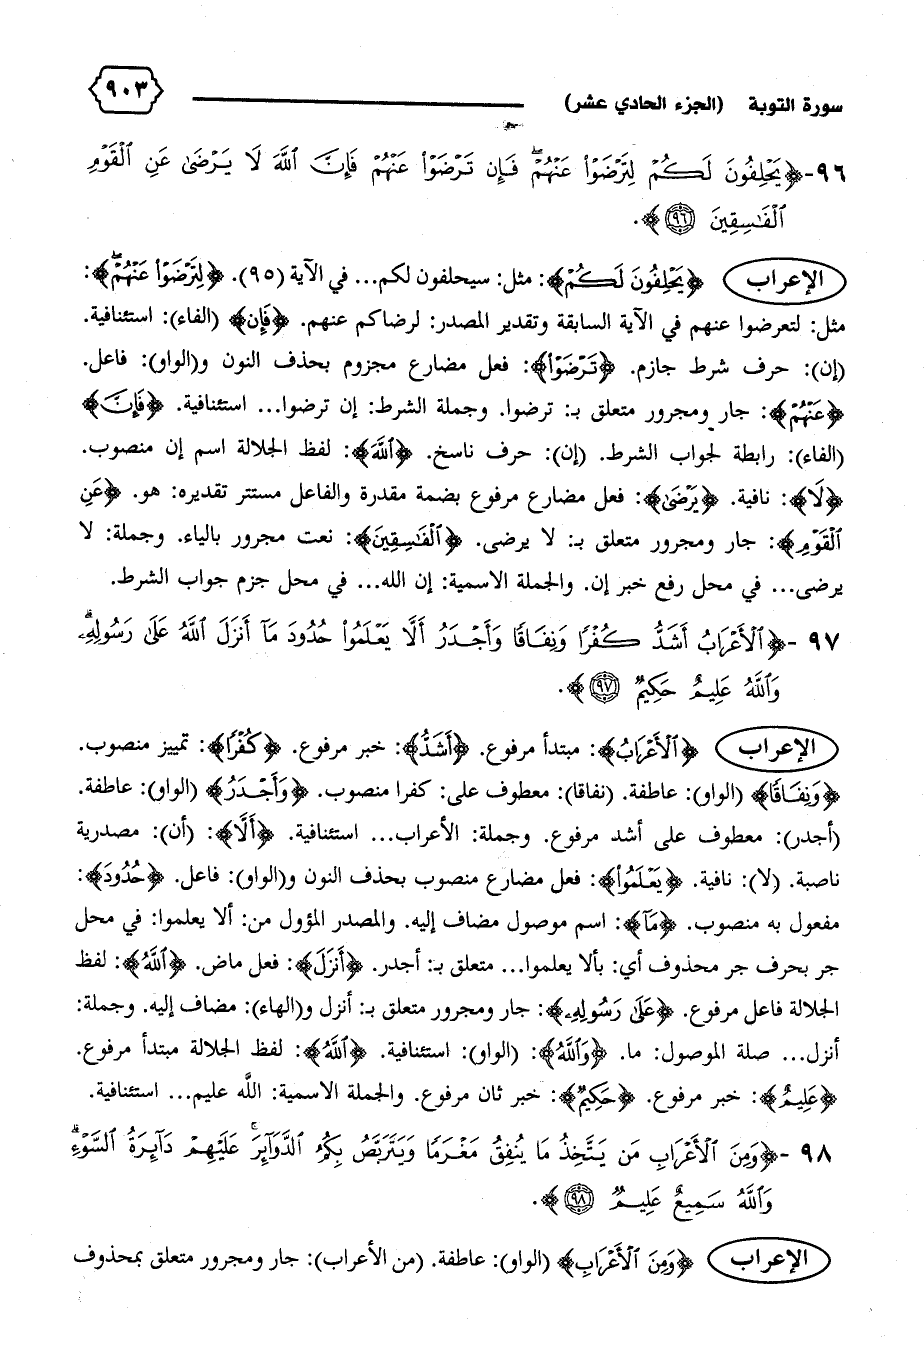 سورة التوبة (الجزء الحادي عشر) ٩٠٣
٩٦-﴿يَحْلِفُونَ لَكُمْ لِتَرْضَوْا۟ عَنْهُمْ ۖ فَإِن تَرْضَوْا۟ عَنْهُمْ فَإِنَّ ٱللَّهَ لَا يَرْضَىٰ عَنِ ٱلْقَوْمِ
ٱلْفَـٰسِقِينَ ٩٦﴾.
الإعراب ﴿يَحْلِفُونَ لَكُمْ﴾: مثل: سيحلفون لكم... في الآية (٩٥). ﴿لِتَرْضَوْا۟ عَنْهُمْ ۖ﴾:
مثل: لتعرضوا عنهم في الآية السابقة وتقدير المصدر: لرضاكم عنهم. ﴿فَإِن﴾ (الفاء): استئنافية.
(إن): حرف شرط جازم. ﴿تَرْضَوْا۟﴾: فعل مضارع مجزوم بحذف النون و(الواو): فاعل.
﴿عَنْهُمْ﴾: جار ومجرور متعلق بـ: ترضوا. وجملة الشرط: إن ترضوا... استئنافية. ﴿فَإِنَّ﴾
(الفاء): رابطة لجواب الشرط. (إن): حرف ناسخ. ﴿ٱللَّهَ﴾: لفظ الجلالة اسم إن منصوب.
﴿لَا﴾: نافية. ﴿يَرْضَىٰ﴾: فعل مضارع مرفوع بضمة مقدرة والفاعل مستتر تقديره: هو. ﴿عَنِ
ٱلْقَوْمِ﴾: جار ومجرور متعلق بـ: لا يرضى. ﴿ٱلْفَـٰسِقِينَ﴾: نعت مجرور بالياء. وجملة: لا
يرضى... في محل رفع خبر إن. والجملة الاسمية: إن الله... في محل جزم جواب الشرط.
٩٧ -﴿ٱلْأَعْرَابُ أَشَدُّ كُفْرًا وَنِفَاقًا وَأَجْدَرُ أَلَّا يَعْلَمُوا۟ حُدُودَ مَآ أَنزَلَ ٱللَّهُ عَلَىٰ رَسُولِهِۦ ۗ
وَٱللَّهُ عَلِيمٌ حَكِيمٌ ٩٧﴾.
الإعراب ﴿ٱلْأَعْرَابُ﴾: مبتدأ مرفوع. ﴿أَشَدُّ﴾: خبر مرفوع. ﴿كُفْرًا﴾: تمييز منصوب.
﴿وَنِفَاقًا﴾ (الواو): عاطفة. (نفاقا): معطوف على: كفرا منصوب. ﴿وَأَجْدَرُ﴾ (الواو): عاطفة.
(أجدر): معطوف على أشد مرفوع. وجملة: الأعراب... استئنافية. ﴿أَلَّا﴾: (أن): مصدرية
ناصبة. (لا): نافية. ﴿يَعْلَمُوا۟﴾: فعل مضارع منصوب بحذف النون و(الواو): فاعل. ﴿حُدُودَ﴾:
مفعول به منصوب. ﴿مَآ﴾: اسم موصول مضاف إليه. والمصدر المؤول من: ألا يعلموا: في محل
جر بحرف جر محذوف أي: بألا يعلموا... متعلق بـ: أجدر. ﴿أَنزَلَ﴾: فعل ماض. ﴿ٱللَّهُ﴾: لفظ
الجلالة فاعل مرفوع. ﴿عَلَىٰ رَسُولِهِۦ﴾: جار ومجرور متعلق بـ: أنزل و(الهاء): مضاف إليه. وجملة:
أنزل... صلة الموصول: ما. ﴿وَٱللَّهُ﴾: (الواو): استئنافية. ﴿ٱللَّهُ﴾: لفظ الجلالة مبتدأ مرفوع.
﴿عَلِيمٌ﴾: خبر مرفوع. ﴿حَكِيمٌ﴾: خبر ثان مرفوع. والجملة الاسمية: اللَّه عليم... استئنافية.
٩٨ -﴿وَمِنَ ٱلْأَعْرَابِ مَن يَتَّخِذُ مَا يُنفِقُ مَغْرَمًا وَيَتَرَبَّصُ بِكُمُ ٱلدَّوَآئِرَ ۚ عَلَيْهِمْ دَآئِرَةُ ٱلسَّوْءِ ۗ
وَٱللَّهُ سَمِيعٌ عَلِيمٌ ٩٨﴾.
الإعراب ﴿وَمِنَ ٱلْأَعْرَابِ﴾ (الواو): عاطفة. (من الأعراب): جار ومجرور متعلق بمحذوف